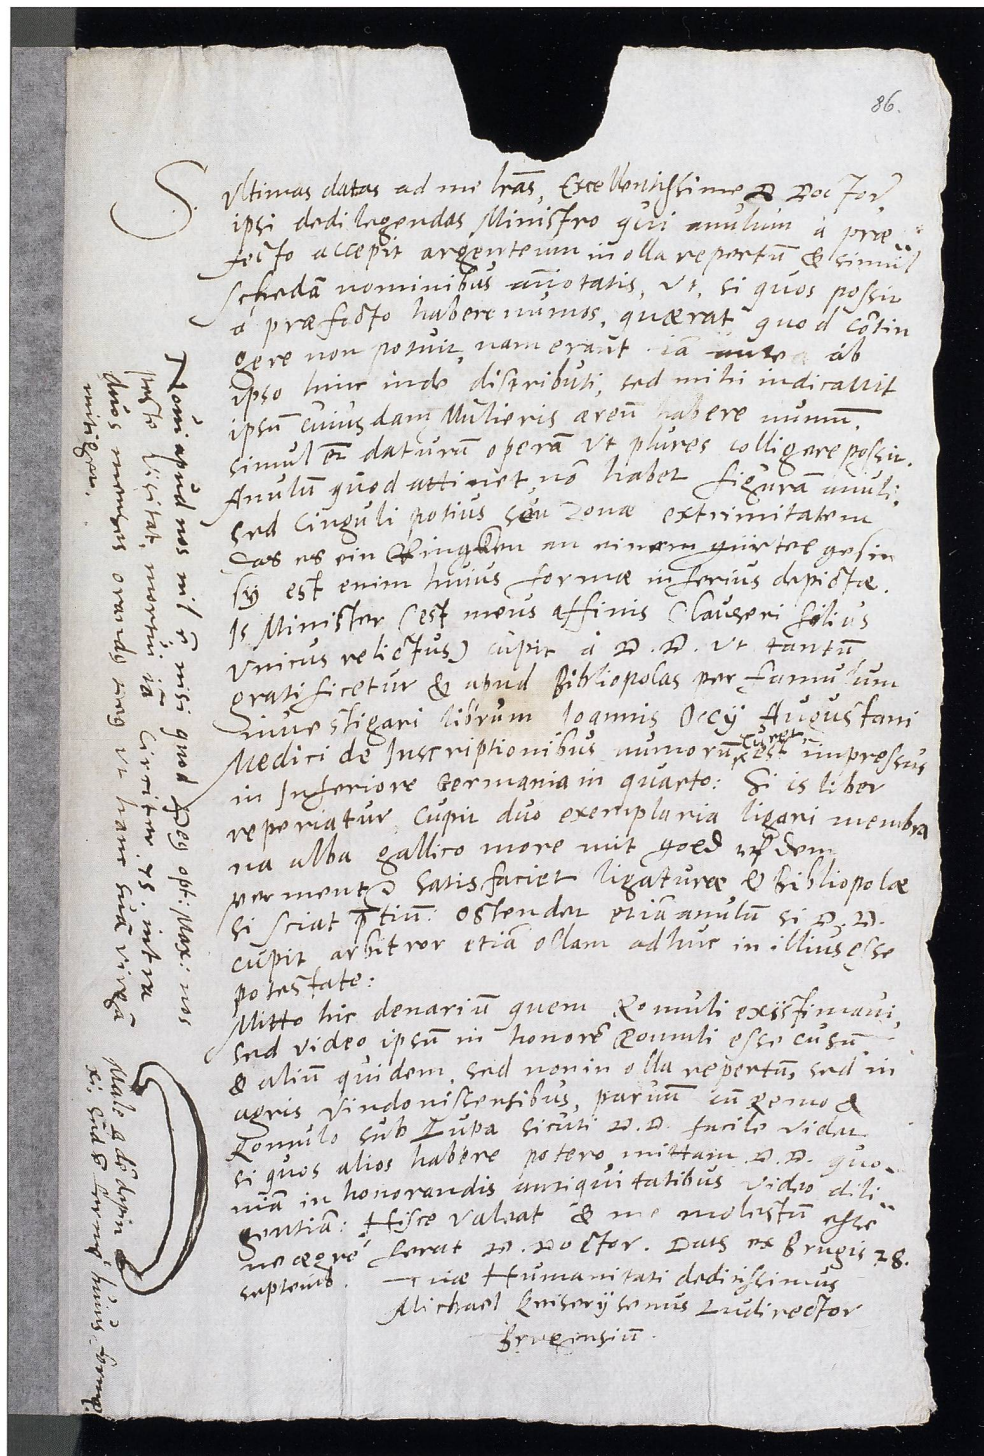 86.
S. Vltimas datas ad me lr̃as, Excellentissime D Doctor
ipsi dedi legendas Ministro qui anulum à præ
fecto accepit argenteum in olla repertũ & simul
schedã nominibus añotatis, vt, si quos possit
à præfecto habere numos, quærat quod cõtin
gere non potuit, nam erant iã ab
ipso hinc inde distributi, sed mihi indicauit
ipsum cuiusdam Mulieris æreũ habere numũ.
simul daturũ operam vt plures colligere possit.
Anulũ quod attinet, nõ habet figuram anuli:
sed Cinguli potius seu Zonæ extrimitatem
das es ein Ringken an einem gürtel gesin
sÿ est enim huius formæ inferius depictæ.
Is Minister (est meus affinis Clauseri filius
vnicus relictus) cupit à D. D. vt tantũ
gratificetur & apud Bibliopolas per famulum
inuestigari librum Ioannis Occÿ Augustani
Medici de Inscriptionibus numorũ est impressus
in Inferiore Germania in quarto: Si is liber
reperiatur, cupit duo exemplaria ligari membra
na alba gallico more mit
satisfaciet ligaturæ & Bibliopolæ
si sciat p̃tium: ostendet etiã anulũ si D. D.
cupit arbitror etiã ollam adhuc in illius esse
potestate:
Mitto hic denariũ quem Romuli existimaui,
sed video ipsum in honorẽ Romuli esse cusũ
& aliũ quidem, sed non in olla repertũ, sed in
agris Vindonissensibus, paruũ cũ Remo &
Romulo sub Lupa sicuti D. D. facile videt
si quos alios habere potero mittam D. D. quo
niã in honorandis antiquitatibus video dili
gentiã: Hisce valeat & me molestũ esse
ne ægrè ferat D. Doctor. Dats ex Brugis 28.
septemb. Tuæ Humanitati deditissimus
Michael Ludirector
Brugensiũ.
Noui apud nos nil ẽ nisi quod opt. Max: nos
peste visitat, mortui iã circiter 75. intra
duos menses orandus vt hanc suã virgã
mitiget.
Male depin
xi, sed huius formæ.